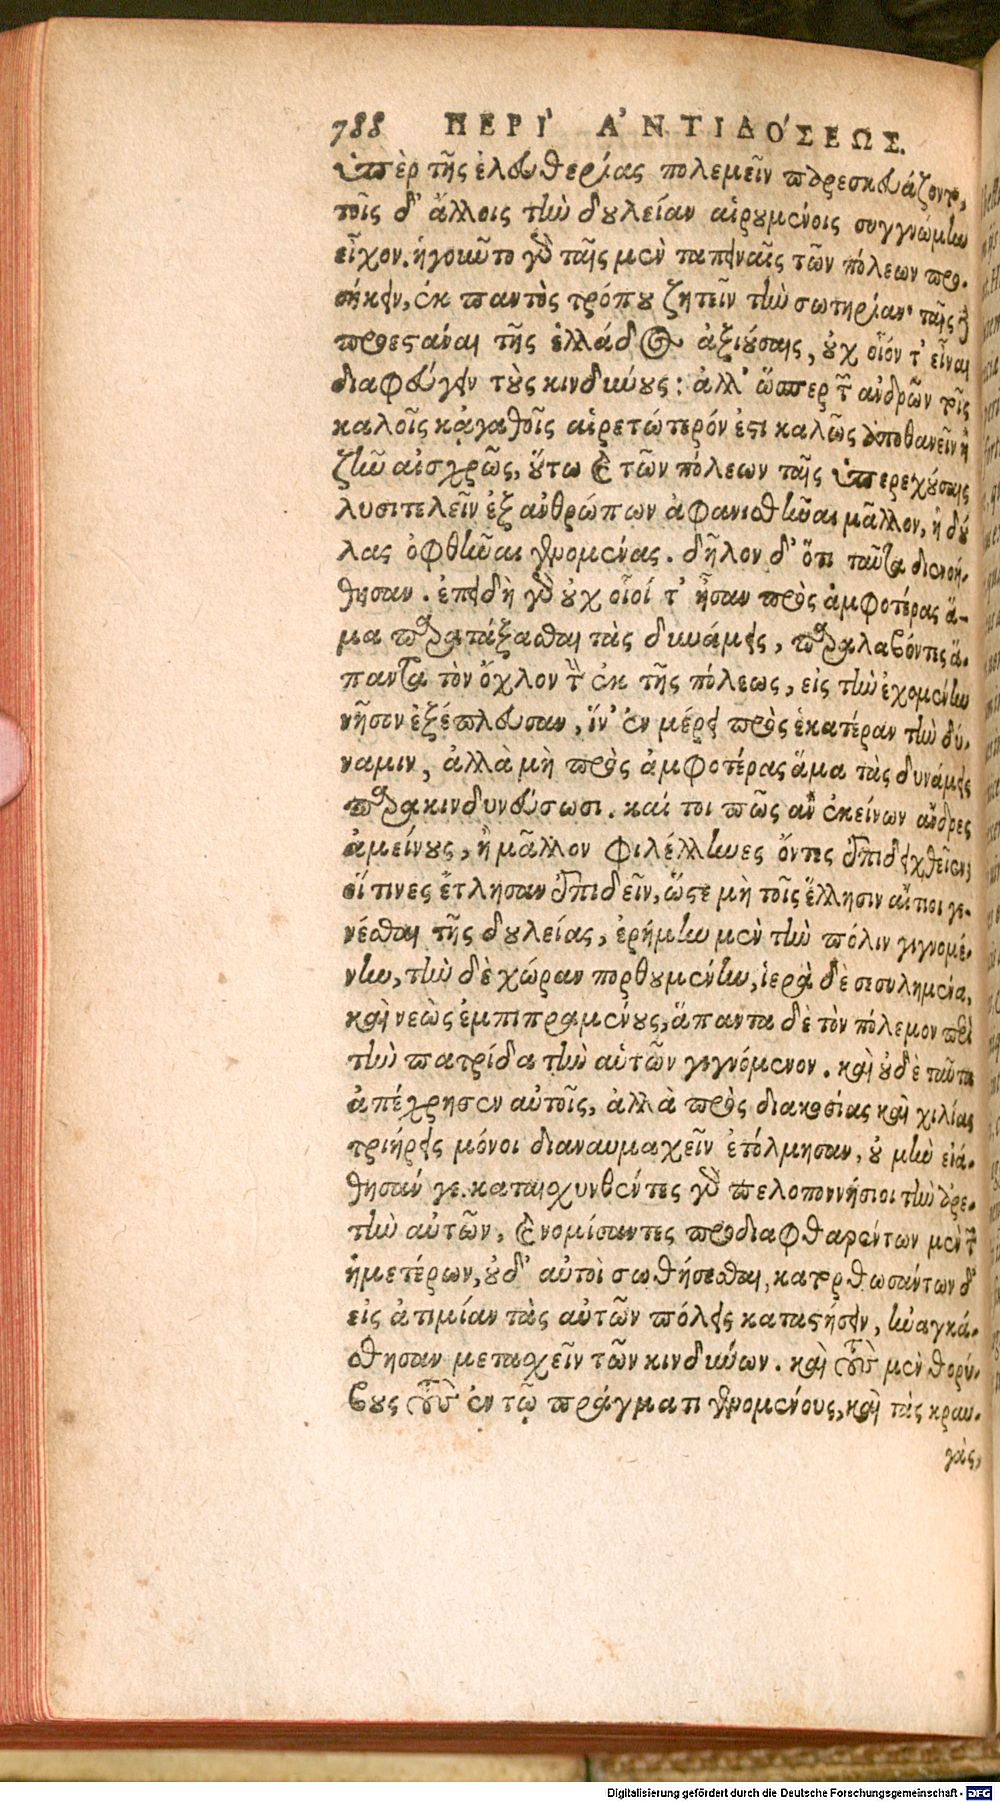 788 ΠΕΡΙ' Α'ΝΤΙΔΟ'ΣΕΩΣ.
ὑπὲρ τῆς ἐλευθερίας πολεμεῖν παρεσκευάζοντο,
τοῖς δ' ἄλλοις τὴν δουλείαν αἱρουμένοις συγγνώμην
εἶχον. ἡγοῦντο γὰρ ταῖς μὲν ταπειναῖς τῶν πόλεων προ-
σήκειν, ἐκ παντὸς τρόπου ζητεῖν τὴν σωτηρίαν· ταῖς δὲ
προεστάναι τῆς ἑλλάδος ἀξιούσαις, οὐχ οἷόν τ' εἶναι
διαφεύγειν τοὺς κινδύνους: ἀλλ' ὥσπερ τῶν ἀνδρῶν τοῖς
καλοῖς κἀγαθοῖς αἱρετώτερόν ἐστι καλῶς ἀποθανεῖν ἢ
ζῆν αἰσχρῶς, οὕτω καὶ τῶν πόλεων ταῖς ὑπερεχούσαις
λυσιτελεῖν ἐξ ἀνθρώπων ἀφανισθῆναι μᾶλλον, ἢ δού
λας ὀφθῆναι γενομένας. δῆλον δ' ὅτι ταῦτα διενοή-
θησαν. ἐπειδὴ γὰρ οὐχ οἷοί τ' ἦσαν πρὸς ἀμφοτέρας ἅ-
μα παρατάξασθαι τὰς δυνάμεις, παραλαβόντες ἅ-
παντα τὸν ὄχλον τὸν ἐκ τῆς πόλεως, εἰς τὴν ἐχομένην
νῆσον ἐξέπλευσαν, ἵν' ἐν μέρει πρὸς ἑκατέραν τὴν δύ-
ναμιν, ἀλλὰ μὴ πρὸς ἀμφοτέρας ἅμα τὰς δυνάμεις
παρακινδυνεύσωσι. καί τοι πῶς ἂν ἐκείνων ἄνδρες
ἀμείνους, ἢ μᾶλλον φιλέλληνες ὄντες ἐπιδειχθεῖεν;
οἵ τινες ἔτλησαν ἐπιδεῖν, ὥστε μὴ τοῖς ἕλλησιν αἴτιοι γε-
νέσθαι τῆς δουλείας, ἐρήμην μὲν τὴν πόλιν γιγνομέ-
νην, τὴν δὲ χώραν πορθουμένην, ἱερὰ δὲ σεσυλημένα,
καὶ νεὼς ἐμπιπραμένους, ἅπαντα δὲ τὸν πόλεμον περὶ
τὴν πατρίδα τὴν αὑτῶν γιγνόμενον. καὶ οὐδὲ ταῦτα
ἀπέχρησεν αὐτοῖς, ἀλλὰ πρὸς διακοσίας καὶ χιλίας
τριήρεις μόνοι διαναυμαχεῖν ἐτόλμησαν, οὐ μὴν εἰά-
θησάν γε. καταισχυνθέντες γὰρ πελοποννήσιοι τὴν ἀρε-
τὴν αὐτῶν, καὶ νομίσαντες προδιαφθαρέντων μὲν τῶν
ἡμετέρων, οὐδ' αὐτοὶ σωθήσεσθαι, κατορθωσάντων δ'
εἰς ἀτιμίαν τὰς αὑτῶν πόλεις καταστήσειν, ἠναγκά-
σθησαν μετασχεῖν τῶν κινδύνων. καὶ τοὺς μὲν θορύ-
βους τοὺς ἐν τῷ πράγματι γενομένους, καὶ τὰς κραυ-
γὰς,
Digitalisierung gefördert durch die Deutsche Forschungsgemeinschaft - DFG